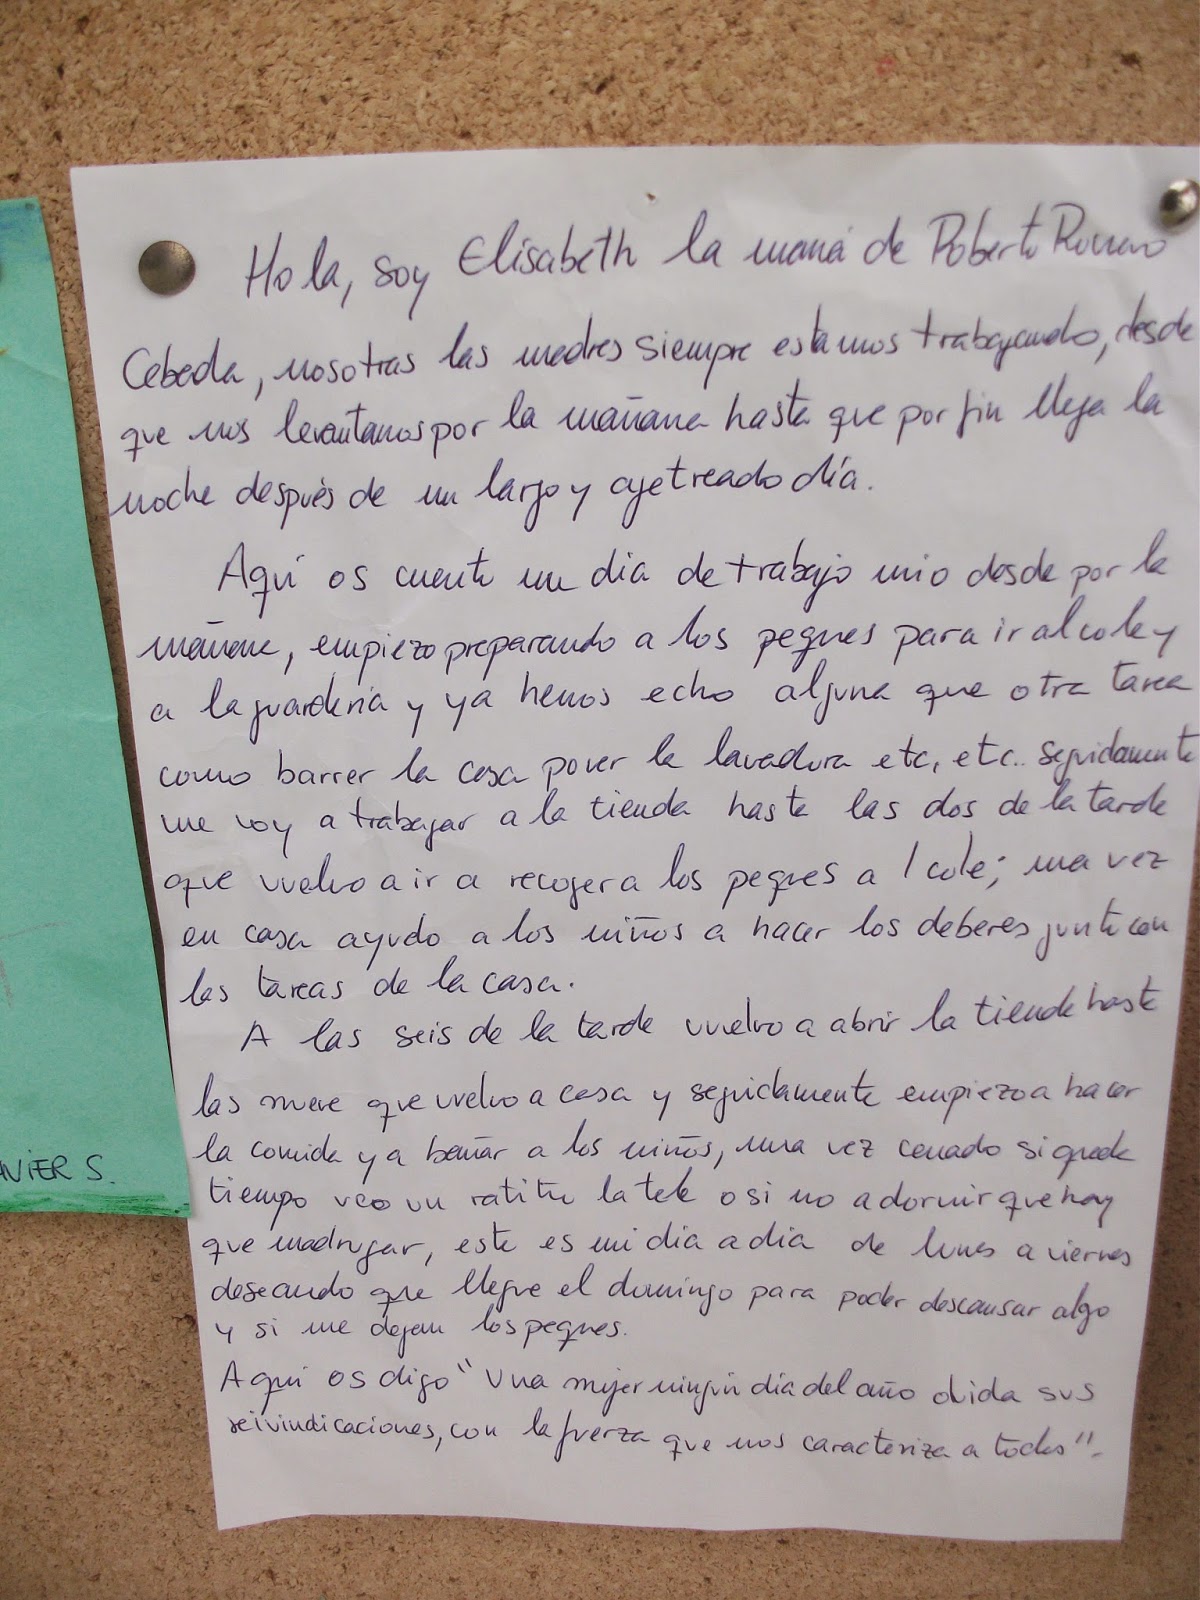 Hola, soy Elisabeth la mamá de Roberto Romero
Cebeda, nosotras las madres siempre estamos trabajando, desde
que nos levantamos por la mañana hasta que por fin llega la
noche después de un largo y ajetreado día.
Aquí os cuento un dia de trabajo mio desde por la
mañana, empiezo preparando a los peques para ir al cole y
a la guarderia y ya hemos echo alguna que otra tarea
como barrer la casa poner la lavadora etc, etc.. seguidamente
me voy a trabajar a la tienda hasta las dos de la tarde
que vuelvo a ir a recoger a los peques a l cole; una vez
en casa ayudo a los niños a hacer los deberes junto con
las tareas de la casa.
A las seis de la tarde vuelvo a abrir la tienda hasta
las nueve que vuelvo a casa y seguidamente empiezo a hacer
la comida y a bañar a los niños, una vez cenado si queda
tiempo veo un ratito la tele o si no a dormir que hay
que madrugar, este es mi dia a dia de lunes a viernes
deseando que llegue el domingo para poder descansar algo
y si me dejan los peques.
Aquí os digo "Una mujer ningún dia del año olvida sus
reivindicaciones, con la fuerza que nos caracteriza a todas".
AVIER S.